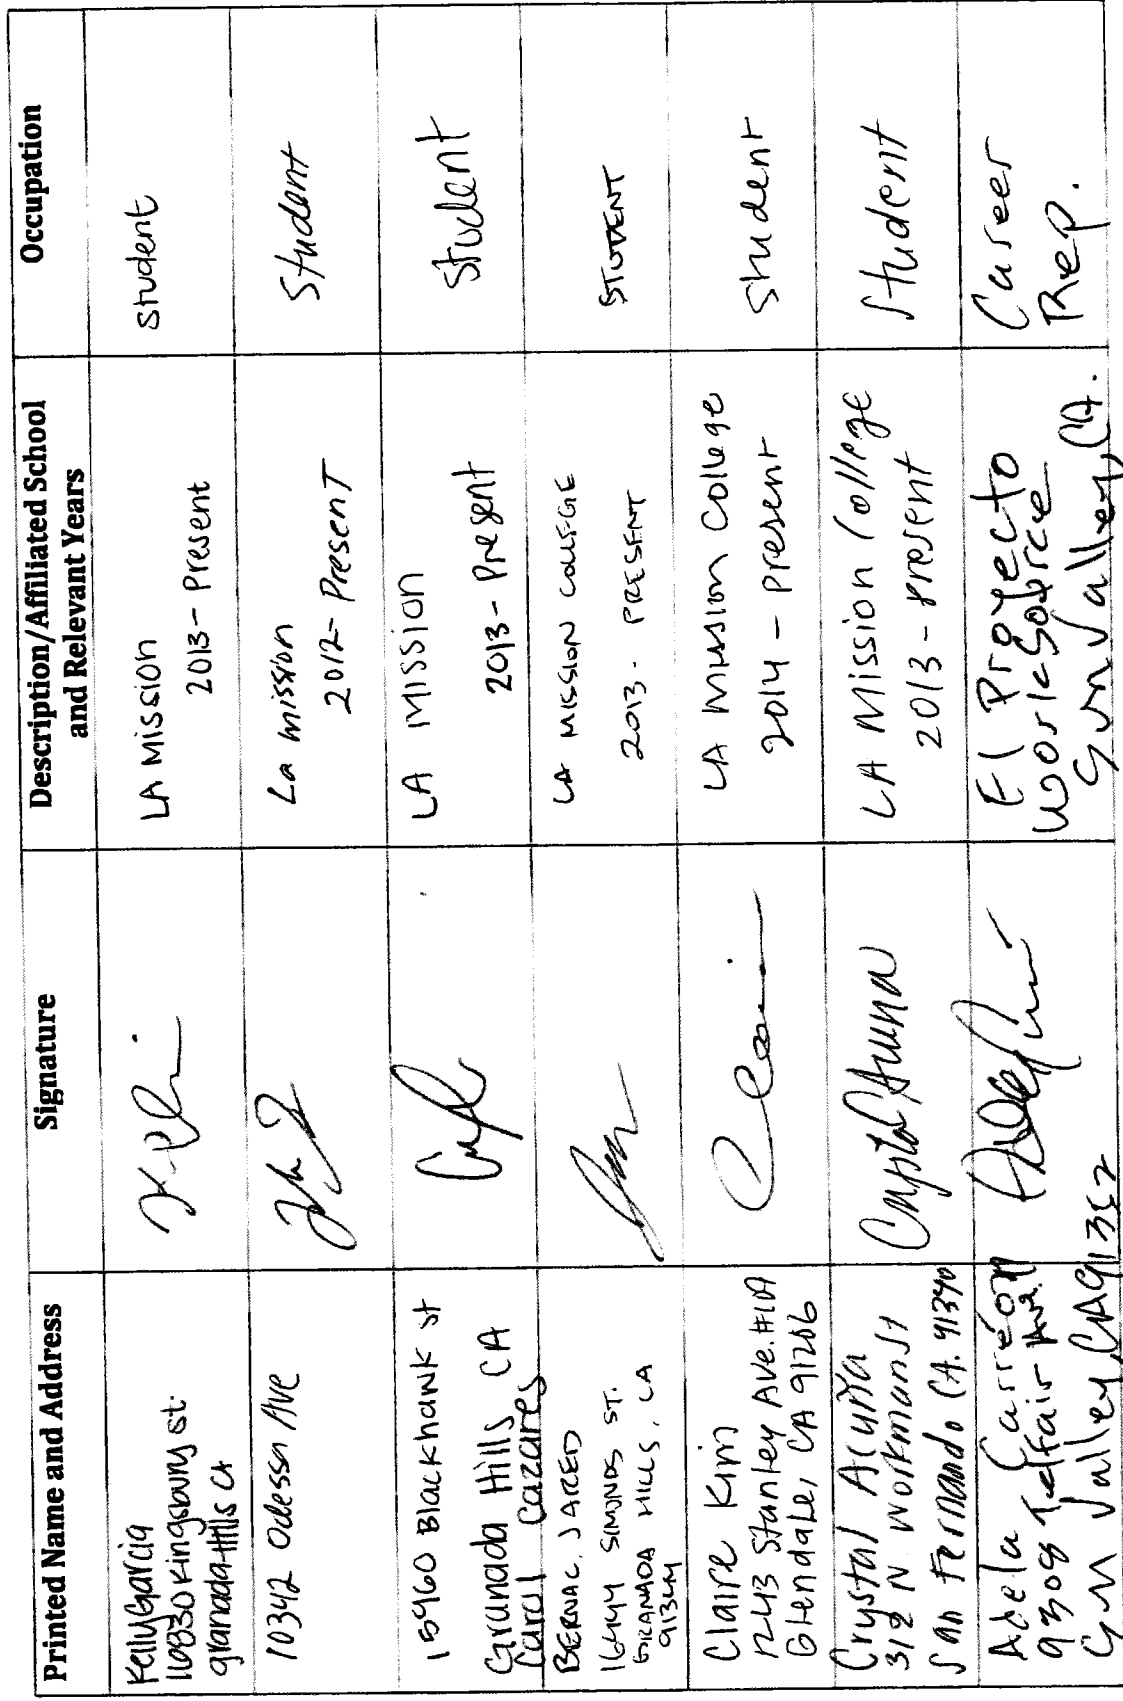 Printed Name and Address
Signature
Description/Affiliated School
and Relevant Years
Occupation
Kelly Garcia
16830 Kingsbury st.
granada Hills CA
LA Mission
2013 - Present
student
10342 Odessa Ave
La mission
2012 - Present
Student
15960 Blackhawk st
Granada Hills CA
Carol Cazares
LA MISSION
2013 - Present
Student
BERNAC, JARED
16444 SIMONDS ST.
GRANADA HILLS, CA
91344
LA MISSION COLLEGE
2013 - PRESENT
STUDENT
Claire Kim
1243 Stanley Ave. #10A
Glendale, CA 91206
LA Mission College
2014 - present
Student
Crystal Acuña
312 N Workman St
San Fernando CA. 91340
Crystal Acuna
LA Mission College
2013 - present
Student
Adela Carreón
9308 Telfair Ave.
Sun Valley, CA 91352
El Proyecto
WorkSource
Sun Valley, CA.
Career
Rep.